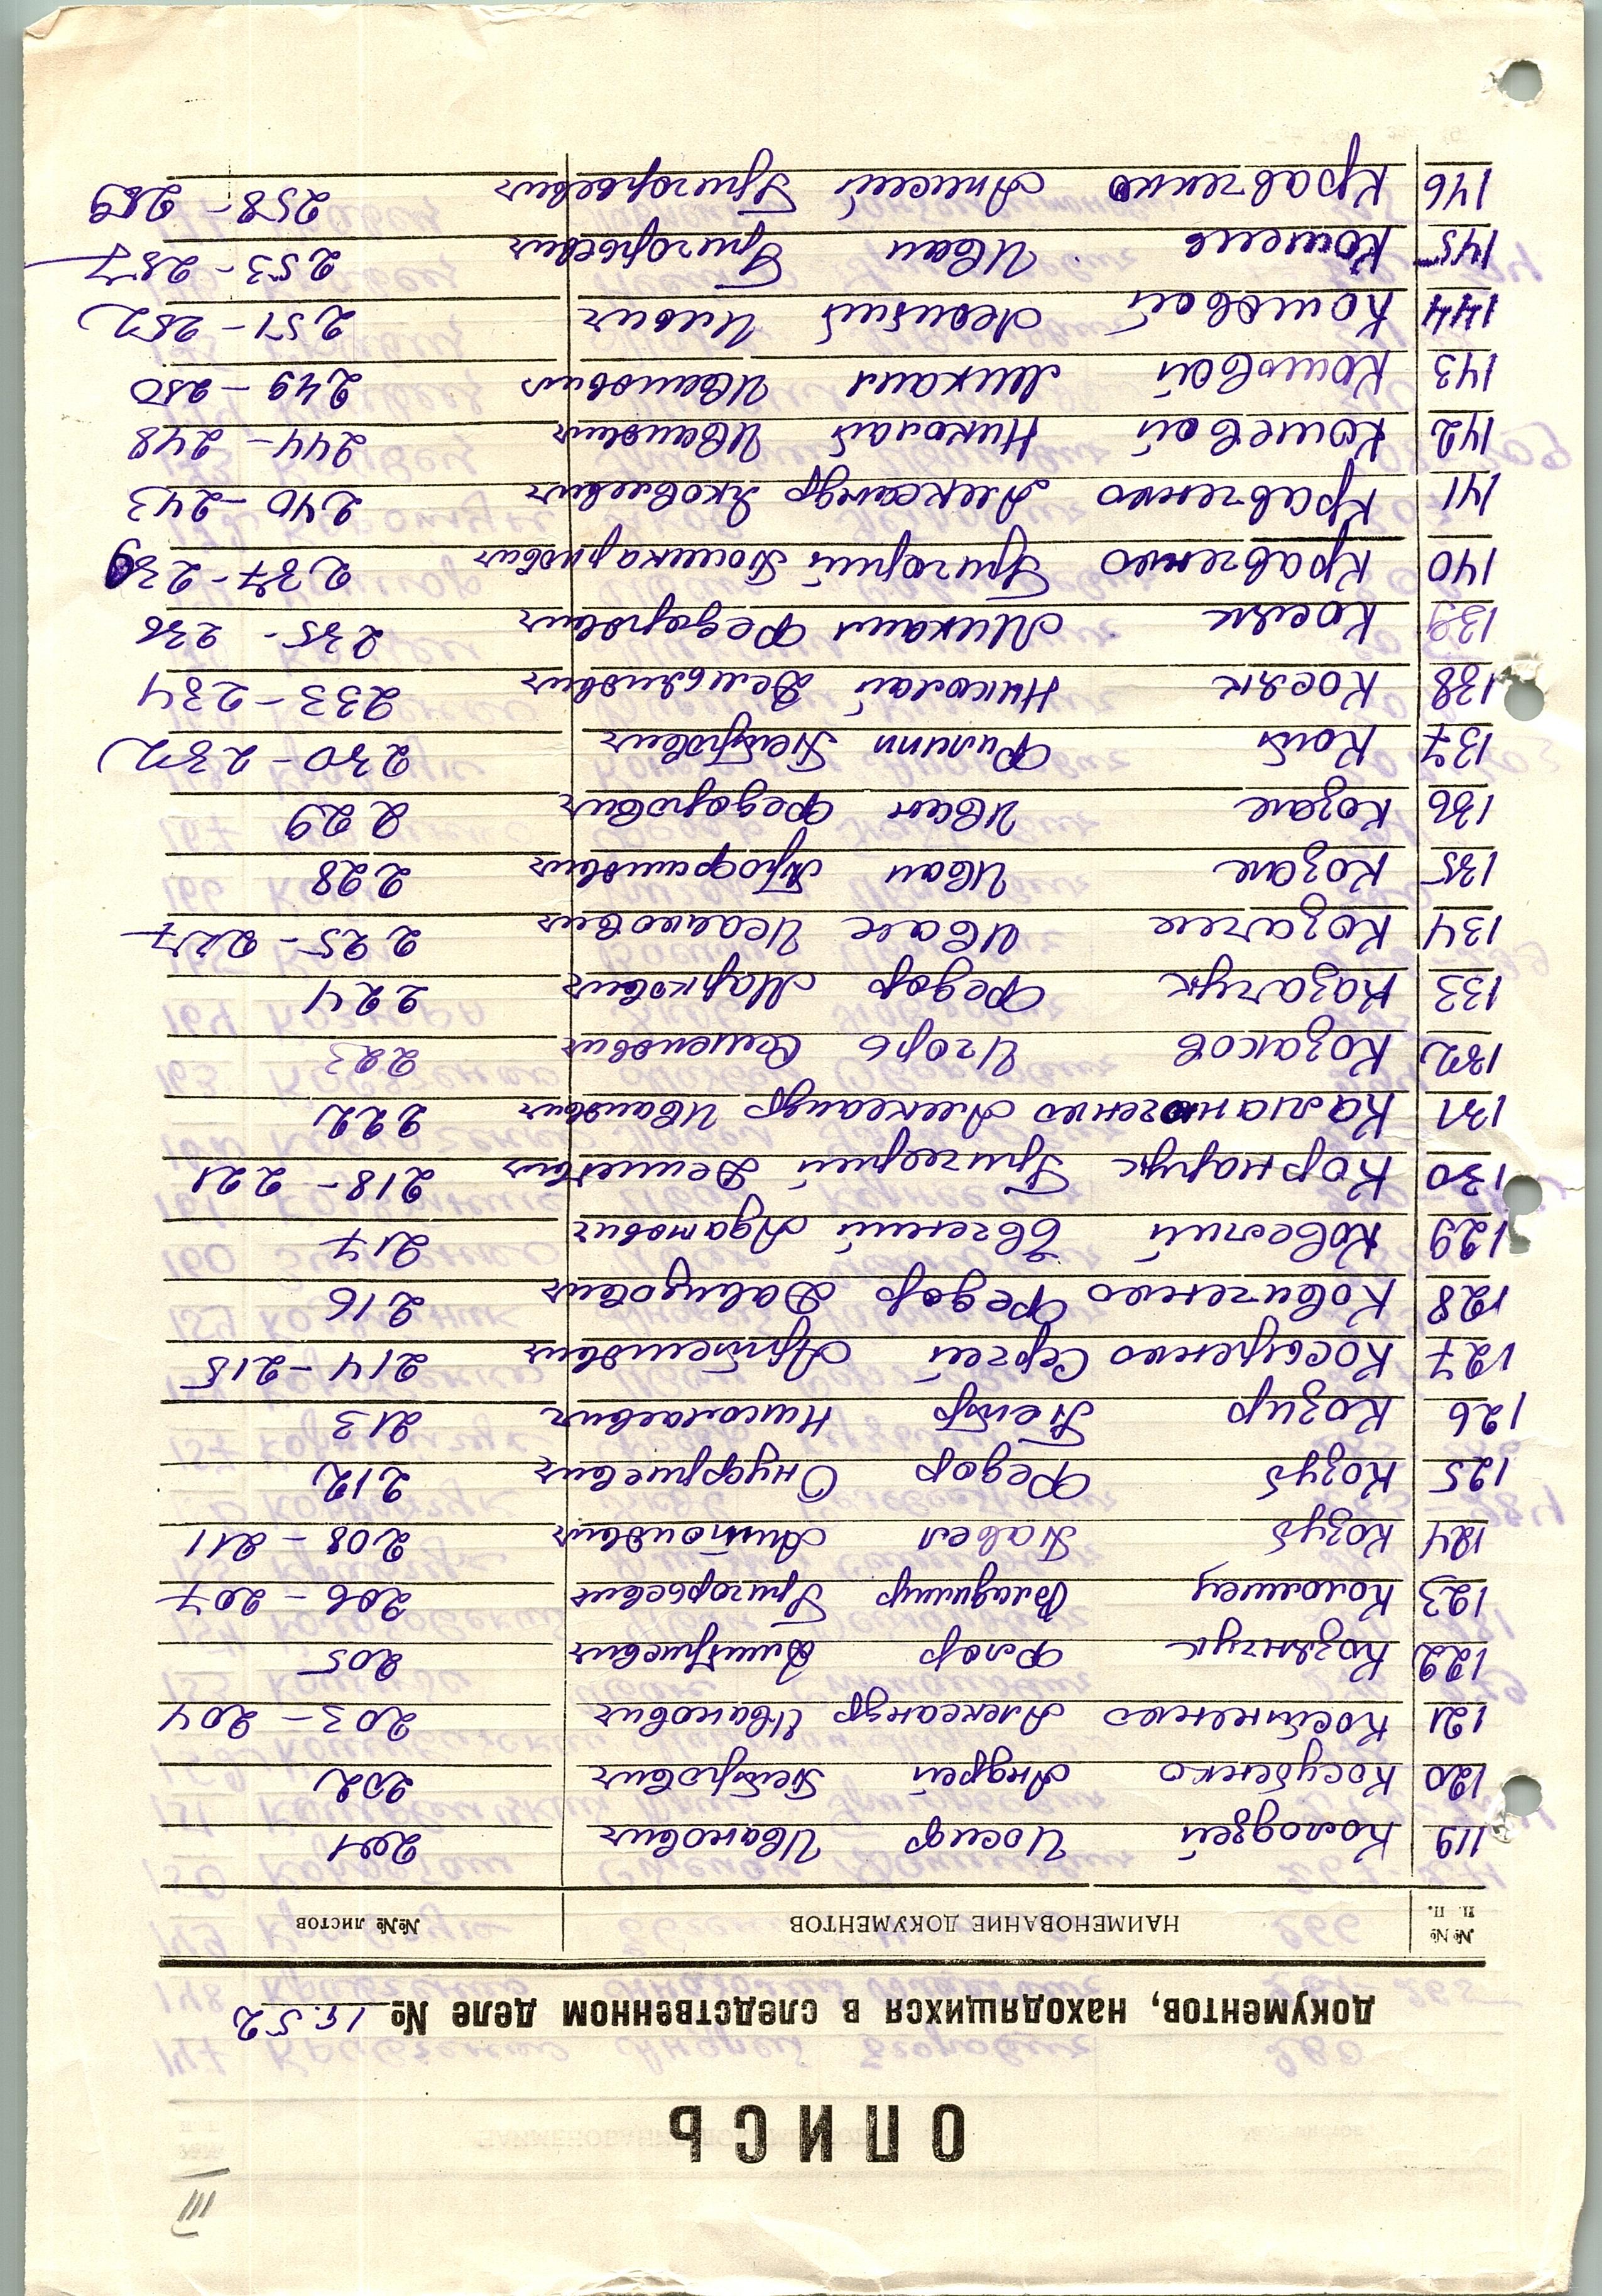 III
ОПИСЬ
документов, находящихся в следственном деле № 15.52
№№ п. п. НАИМЕНОВАНИЕ ДОКУМЕНТОВ №№ листов
119 Колодзей Иосиф Иванович 201
120 Косубенко Андрей Петрович 202
121 Костиненко Александр Иванович 203-204
122 Козянчук Флор Дмитриевич 205
123 Коломиец Владимир Григорьевич 206-207
124 Козуб Павел Антонович 208-211
125 Козуб Федор Онуфриевич 212
126 Козир Петр Николаевич 213
127 Косыренко Сергей Артемович 214-215
128 Ковиченко Федор Давидович 216
129 Ковесний Евгений Адамович 217
130 Корнарук Григорий Демьянович 218-221
131 Александр Иванович 222
132 Козаков Игорь Семенович 223
133 Казачук Федор Маркович 224
134 Козачек Ивас Исакович 225-227
135 Козак Иван Трофимович 228
136 Козак Иван Федорович 229
137 Кот Филипп Петрович 230-232
138 Косяк Николай Демьянович 233-234
139 Косяк Михаил Федорович 235-236
140 Кравченко Григорий 237-239
141 Кравченко Александр Яковлевич 240-243
142 Кошевой Николай Иванович 244-248
143 Кошевой Михаил Иванович 249-250
144 Кошевой Леонтий 251-252
145 Кошель Иван Григорьевич 253-257
146 Кравченко Алексей Григорьевич 258-259